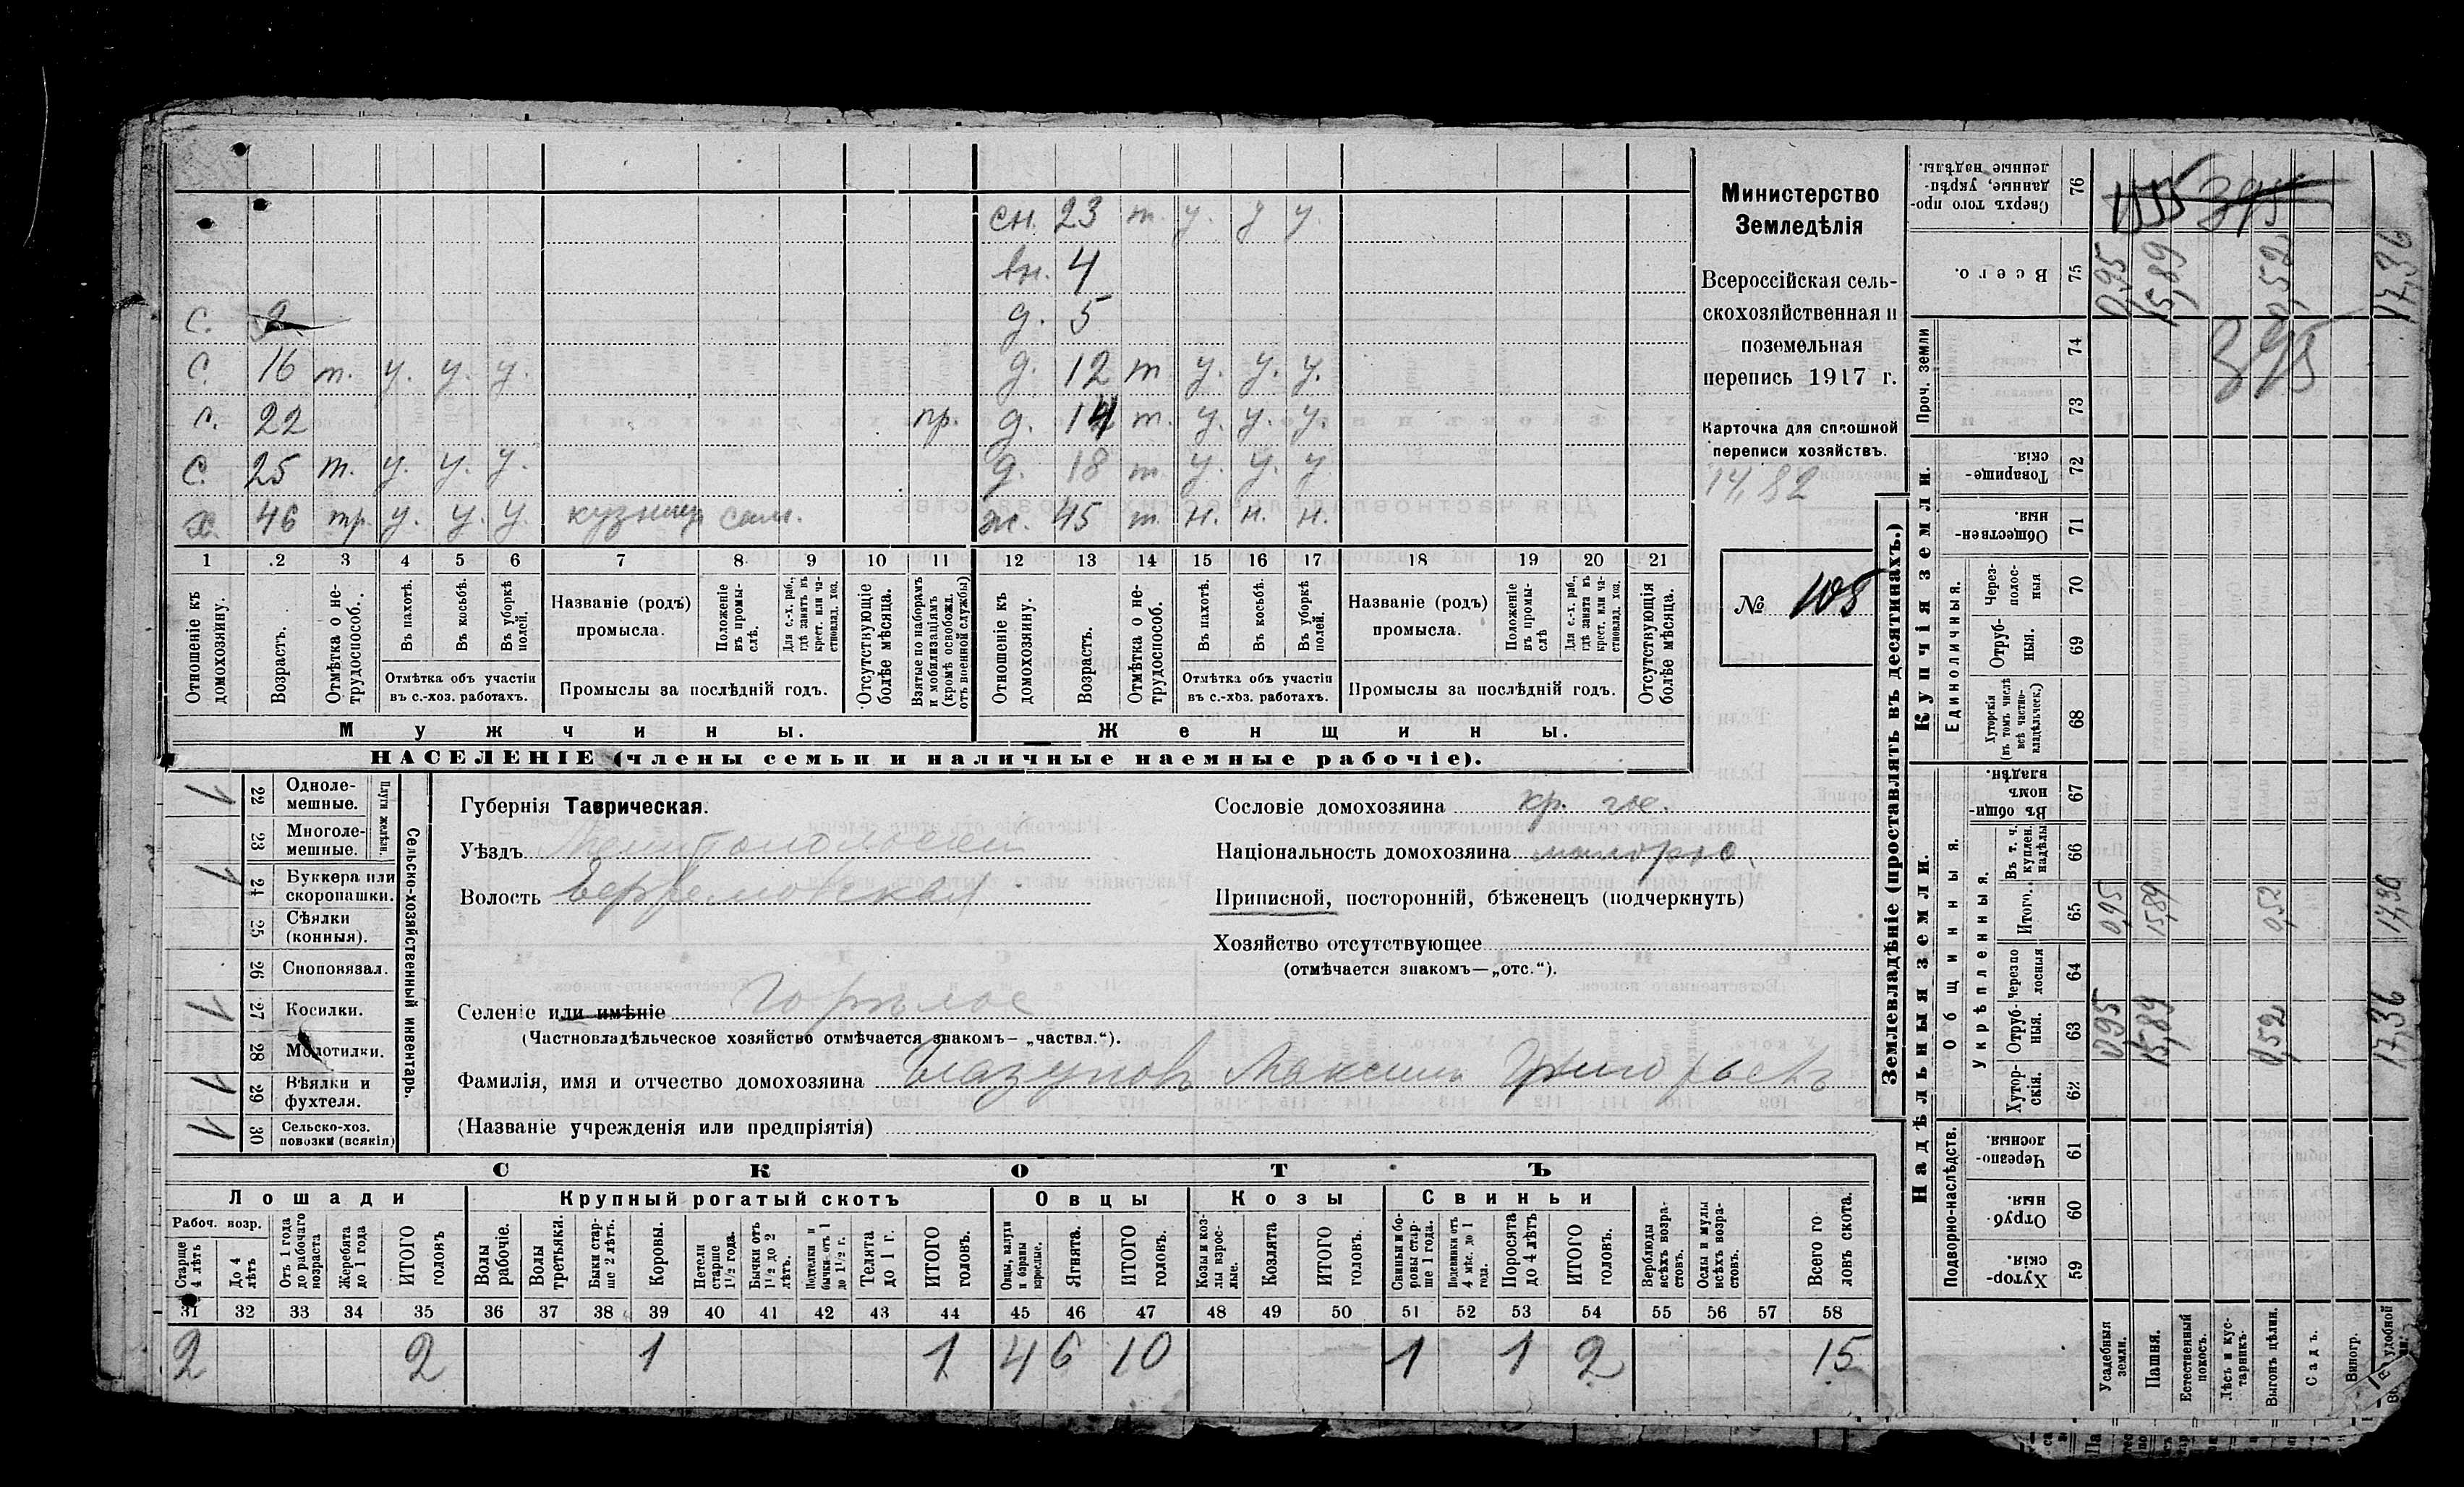 сн. 23 т. у. у у.
вн. 4
с. 2 д. 5
с. 16 т. у. у. у. д. 12 т у. у. у.
с. 22 пр. д. 14 т. у. у. у.
с. 25 т. у. у. у. д. 18 т. у. у. у
х. 46 тр у. у. у. кузнец сам. ж. 45 т. н. н. н.
1 2 3 4 5 6 7 8 9 10 11 12 13 14 15 16 17 18 19 20 21
Отношеніе къ домохозяину.
Возрастъ.
Отмѣтка о нетрудоспособ.
Въ пахотѣ.
Въ косьбѣ.
Въ уборкѣ полей.
Отмѣтка объ участіи въ с.-хоз. работахъ.
Названіе (родъ) промысла.
Положеніе въ промыслѣ.
Для с.-х. раб., гдѣ занятъ въ крест. или частновлад. хоз.
Промыслы за послѣдній годъ.
Отсутствующіе болѣе мѣсяца.
Взятые по наборамъ и мобилизаціямъ (кромѣ освобожд. отъ военной службы)
Отношеніе къ домохозяину.
Возрастъ.
Отмѣтка о нетрудоспособ.
Въ пахотѣ.
Въ косьбѣ.
Въ уборкѣ полей.
Отмѣтка объ участіи въ с.-хоз. работахъ.
Названіе (родъ) промысла.
Положеніе въ промыслѣ
Для с.-х. раб., гдѣ занята въ крест. или частновлад. хоз.
Промыслы за послѣдній годъ.
Отсутствующія болѣе мѣсяца.
Мужчины. Женщины.
НАСЕЛЕНІЕ (члены семьи и наличные наемные рабочіе).
Министерство
Земледѣлія
Всероссійская сель-
скохозяйственная и
поземельная
перепись 1917 г.
Карточка для сплошной
переписи хозяйствъ.
14,82
№ 105
22 Одноле-
мешные.
23 Многоле-
мешные.
Плуги желѣзн.
24 Буккера или
скоропашки.
25 Сѣялки
(конныя).
26 Сноповязал.
27 Косилки.
28 Молотилки.
29 Вѣялки и
фухтеля.
30 Сельско-хоз.
повозки (всякія)
Сельско-хозяйственный инвентарь.
Губернія Таврическая.
Уѣздъ Мелитопольскій
Волость Ефремовская
Селеніе или имѣніе Горѣлое
(Частновладѣльческое хозяйство отмѣчается знакомъ— „частвл.“).
Фамилія, имя и отчество домохозяина Глазуновъ Максимъ Григорьевъ
(Названіе учрежденія или предпріятія)
Сословіе домохозяина кр. гос.
Національность домохозяина малорос.
Приписной, посторонній, бѣженецъ (подчеркнуть)
Хозяйство отсутствующее
(отмѣчается знакомъ—„отс.“).
СКОТЪ
Лошади Крупный рогатый скотъ Овцы Козы Свиньи
Рабоч. возр.
Старше 4 лѣтъ
До 4 лѣтъ
Отъ 1 года до рабочаго возраста
Жеребята до 1 года
ИТОГО головъ
Волы рабочіе.
Волы третьяки.
Быки старше 2 лѣтъ.
Коровы.
Нетели старше 1½ года.
Бычки отъ 1½ до 2 лѣтъ.
Подтелки и бычки отъ 1 до 1½ г.
Телята до 1 г.
ИТОГО головъ.
Овцы, валухи и бараны взрослые.
Ягнята.
ИТОГО головъ.
Козы и козлы взрослые.
Козлята
ИТОГО головъ.
Свиньи и боровы старше 1 года.
Подсвинки отъ 4 мѣс. до 1 года.
Поросята до 4 лѣтъ
ИТОГО головъ.
Верблюды всѣхъ возрастовъ.
Ослы и мулы всѣхъ возрастовъ.
Всего головъ скота.
31 32 33 34 35 36 37 38 39 40 41 42 43 44 45 46 47 48 49 50 51 52 53 54 55 56 57 58
2 2 1 1 4 6 10 1 1 2 15
Землевладѣніе (проставлять въ десятинахъ.)
Надѣльныя земли. Купчія земли. Проч. земли
Подворно-наслѣдств. Общинныя. Укрѣпленныя. Единоличныя.
Хуторскія. 59
Отрубныя. 60
Черезполосныя. 61
Хуторскія. 62
Отрубныя. 63
Черезполосныя 64
Итого. 65
Въ т. ч. куплен. надѣлы 66
Въ общинномъ владѣн. 67
Хуторскія (въ томъ числѣ всѣ частновладѣльческ.) 68
Отрубныя. 69
Черезполосныя 70
Общественныя. 71
Товарищескія. 72
73
74
Всего. 75
Сверхъ того проданные, укрѣпленные надѣлы. 76
Усадебныя земли. 0,95 0,95 0,95
Пашня. 15,89 15,89 15,89
Естественный покосъ.
Лѣсъ и кустарникъ.
Выгонъ цѣлин. 0,52 0,52 0,52
Садъ.
Виногр.
удобной 17,36 17,36 17,36
395
395